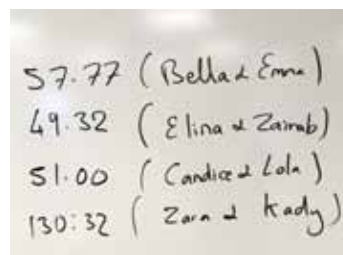 57.77 (Bella & Emma)
49.32 (Elina & Zainab)
51.00 (Candice & Lola)
130:32 (Zara & Kady)